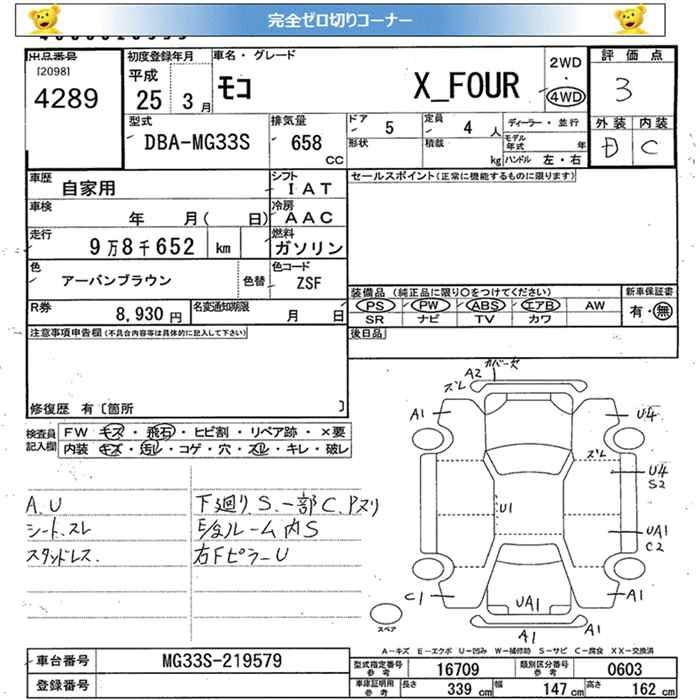 完全ゼロ切りコーナー
出品番号 初度登録年月 車名・グレード 評価点
[2098] 平成 2WD
4289 25 3月 モコ X_FOUR ・ 3
4WD
型式 排気量 ドア 5 定員 4 人 ディーラー・並行 外装 内装
DBA-MG33S 658 CC 形状 積載 kg モデル年式 年 D C
ハンドル 左・右
車歴 自家用 シフト IAT セールスポイント(正常に機能するものに限ります)
車検 年 月( 日) 冷房 AAC
走行 9万8千652 km 燃料 ガソリン
色 アーバンブラウン 色替 色コード ZSF
装備品 (純正品に限り〇をつけてください) 新車保証書
R券 8,930円 名変通知期限 月 日 PS PW ABS エアB AW 有・無
SR ナビ TV カワ
注意事項申告欄(不具合内容等は具体的に記入して下さい) 後日品
修復歴 有〔箇所 〕
検査員記入欄 FW キズ・飛石・ヒビ割・リペア跡・×要
内装 キズ・汚レ・コゲ・穴・スレ・キレ・破レ
A2 カバー欠
ズレ
A1 U4
ズレ
U4
S2
A.U 下廻りS.一部C.Pヌリ U1
シート.スレ E/gルーム内S UA1
C2
スタッドレス. 右FピラーU
C1 UA1 A1
スペア A1 A1
A-キズ E-エクボ U-凹み W-補修跡 S-サビ C-腐食 XX-交換済
車台番号 MG33S-219579 型式指定番号 参考 16709 類別区分番号 参考 0603
登録番号 車庫証明用 参考 長さ 339 cm 幅 147 cm 高さ 162 cm